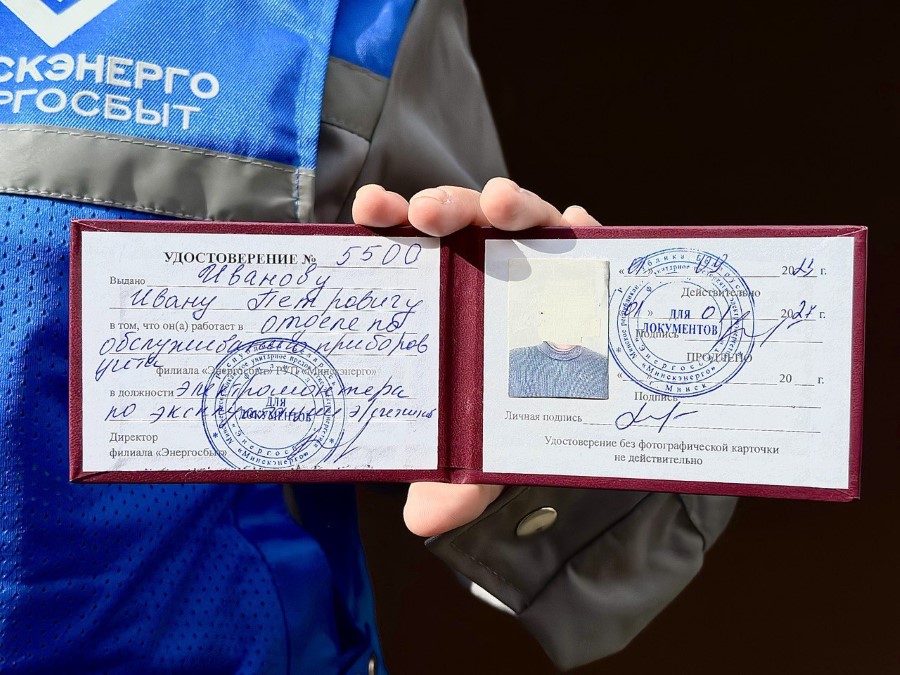 СКЭНЕРГО
РГОСБЫТ
УДОСТОВЕРЕНИЕ № 5500
Выдано Иванову
Ивану Петровичу
в том, что он(а) работает в отделе по
обслуживанию приборов
учета
филиала «Энергосбыт» РУП «Минскэнерго»
в должности электромонтера
по эксплуатации эл.счетчиков
Директор
филиала «Энергосбыт»
ДЛЯ
ДОКУМЕНТОВ
«Минскэнерго»
« 01 » 20 г.
Действительно
« 01 » 01 2027 г.
Подпись
ПРОДЛЕНО
« 20 г.
Подпись
Личная подпись
Удостоверение без фотографической карточки
не действительно
ДЛЯ
ДОКУМЕНТОВ
«Минскэнерго»
г. Минск